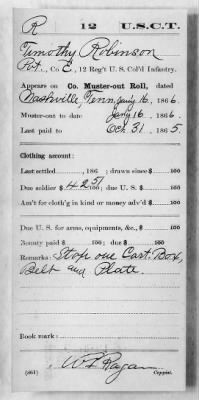 R 12 U.S.C.T.
Timothy Robinson
Pvt., Co. E, 12 Reg't U. S. Col'd Infantry.
Appears on Co. Muster-out Roll, dated
Nashville, Tenn Jany 16, 1866.
Muster-out to date Jany 16, 1866.
Last paid to Oct 31, 1865.
Clothing account:
Last settled , 186 ; drawn since $ 100
Due soldier $ 4 25/100; due U. S. $ 100
Am't for cloth'g in kind or money adv'd $ 100
Due U. S. for arms, equipments, &c., $ 100
Bounty paid $ 100; due $ 100
Remarks: Stop one Cart. Box,
Belt and Plate.
Book mark:
(861) Copyist.